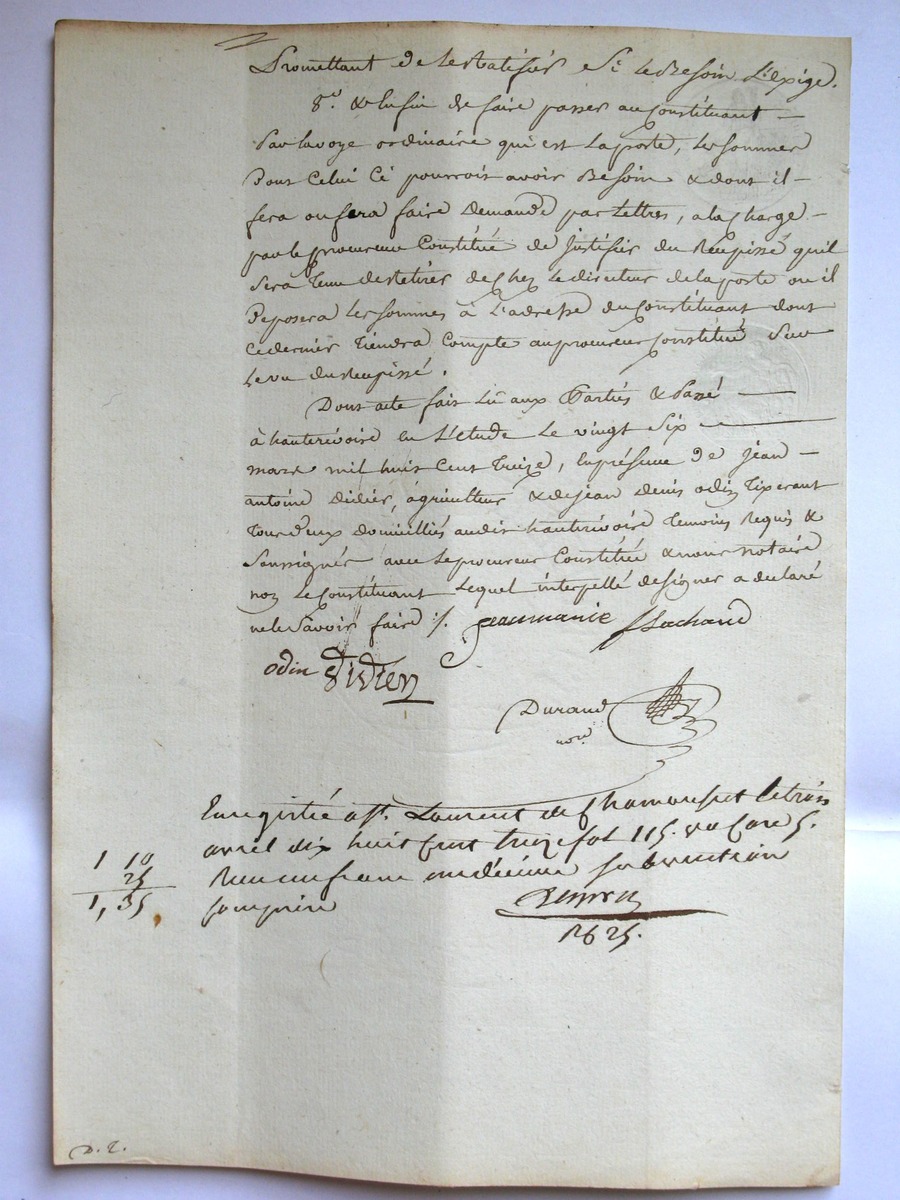 Promettant de les ratifier si le Besoin L'exige.
8.º & Enfin de faire passer au Constituant
Par la voye ordinaire qui est La poste, Les sommes
Dont Celui Ci pourrois avoir Besoin & dont il
fera ou fera faire Demande par Lettres, a la charge
par le procureur Constitué de Justifier du Récépissé qu'il
Sera tenu de Retirer de chez Le directeur de la poste ou il
Deposera Les sommes à L'adresse du Constituant dont
ce dernier tiendra Compte au procureur Constitué Sur
Le vu du Récépissé.
Dont acte fait Lu aux Parties & Passé
à hauterivoire en L'étude Le vingt Six
mars mil huit Cent treize, En présence de Jean
antoine Didier, agriculteur & de Jean Denis odin Tixerant
Tous deux domiciliés audit hauterivoire Temoins Requis &
Soussignés avec Le procureur Constitué & nous notaire
non Le Constituant Lequel interpellé de signer a declaré
ne le Savoir faire ./.
odin Didier
Durand
nore
Enregistré a St. Laurent de Chamousset le trois
avril dix huit Cent treize fol 115. vo Case 5.
Reçu un franc dix Centimes Subvention
1 10
25
1, 35
Comprise
1625.
D. T.